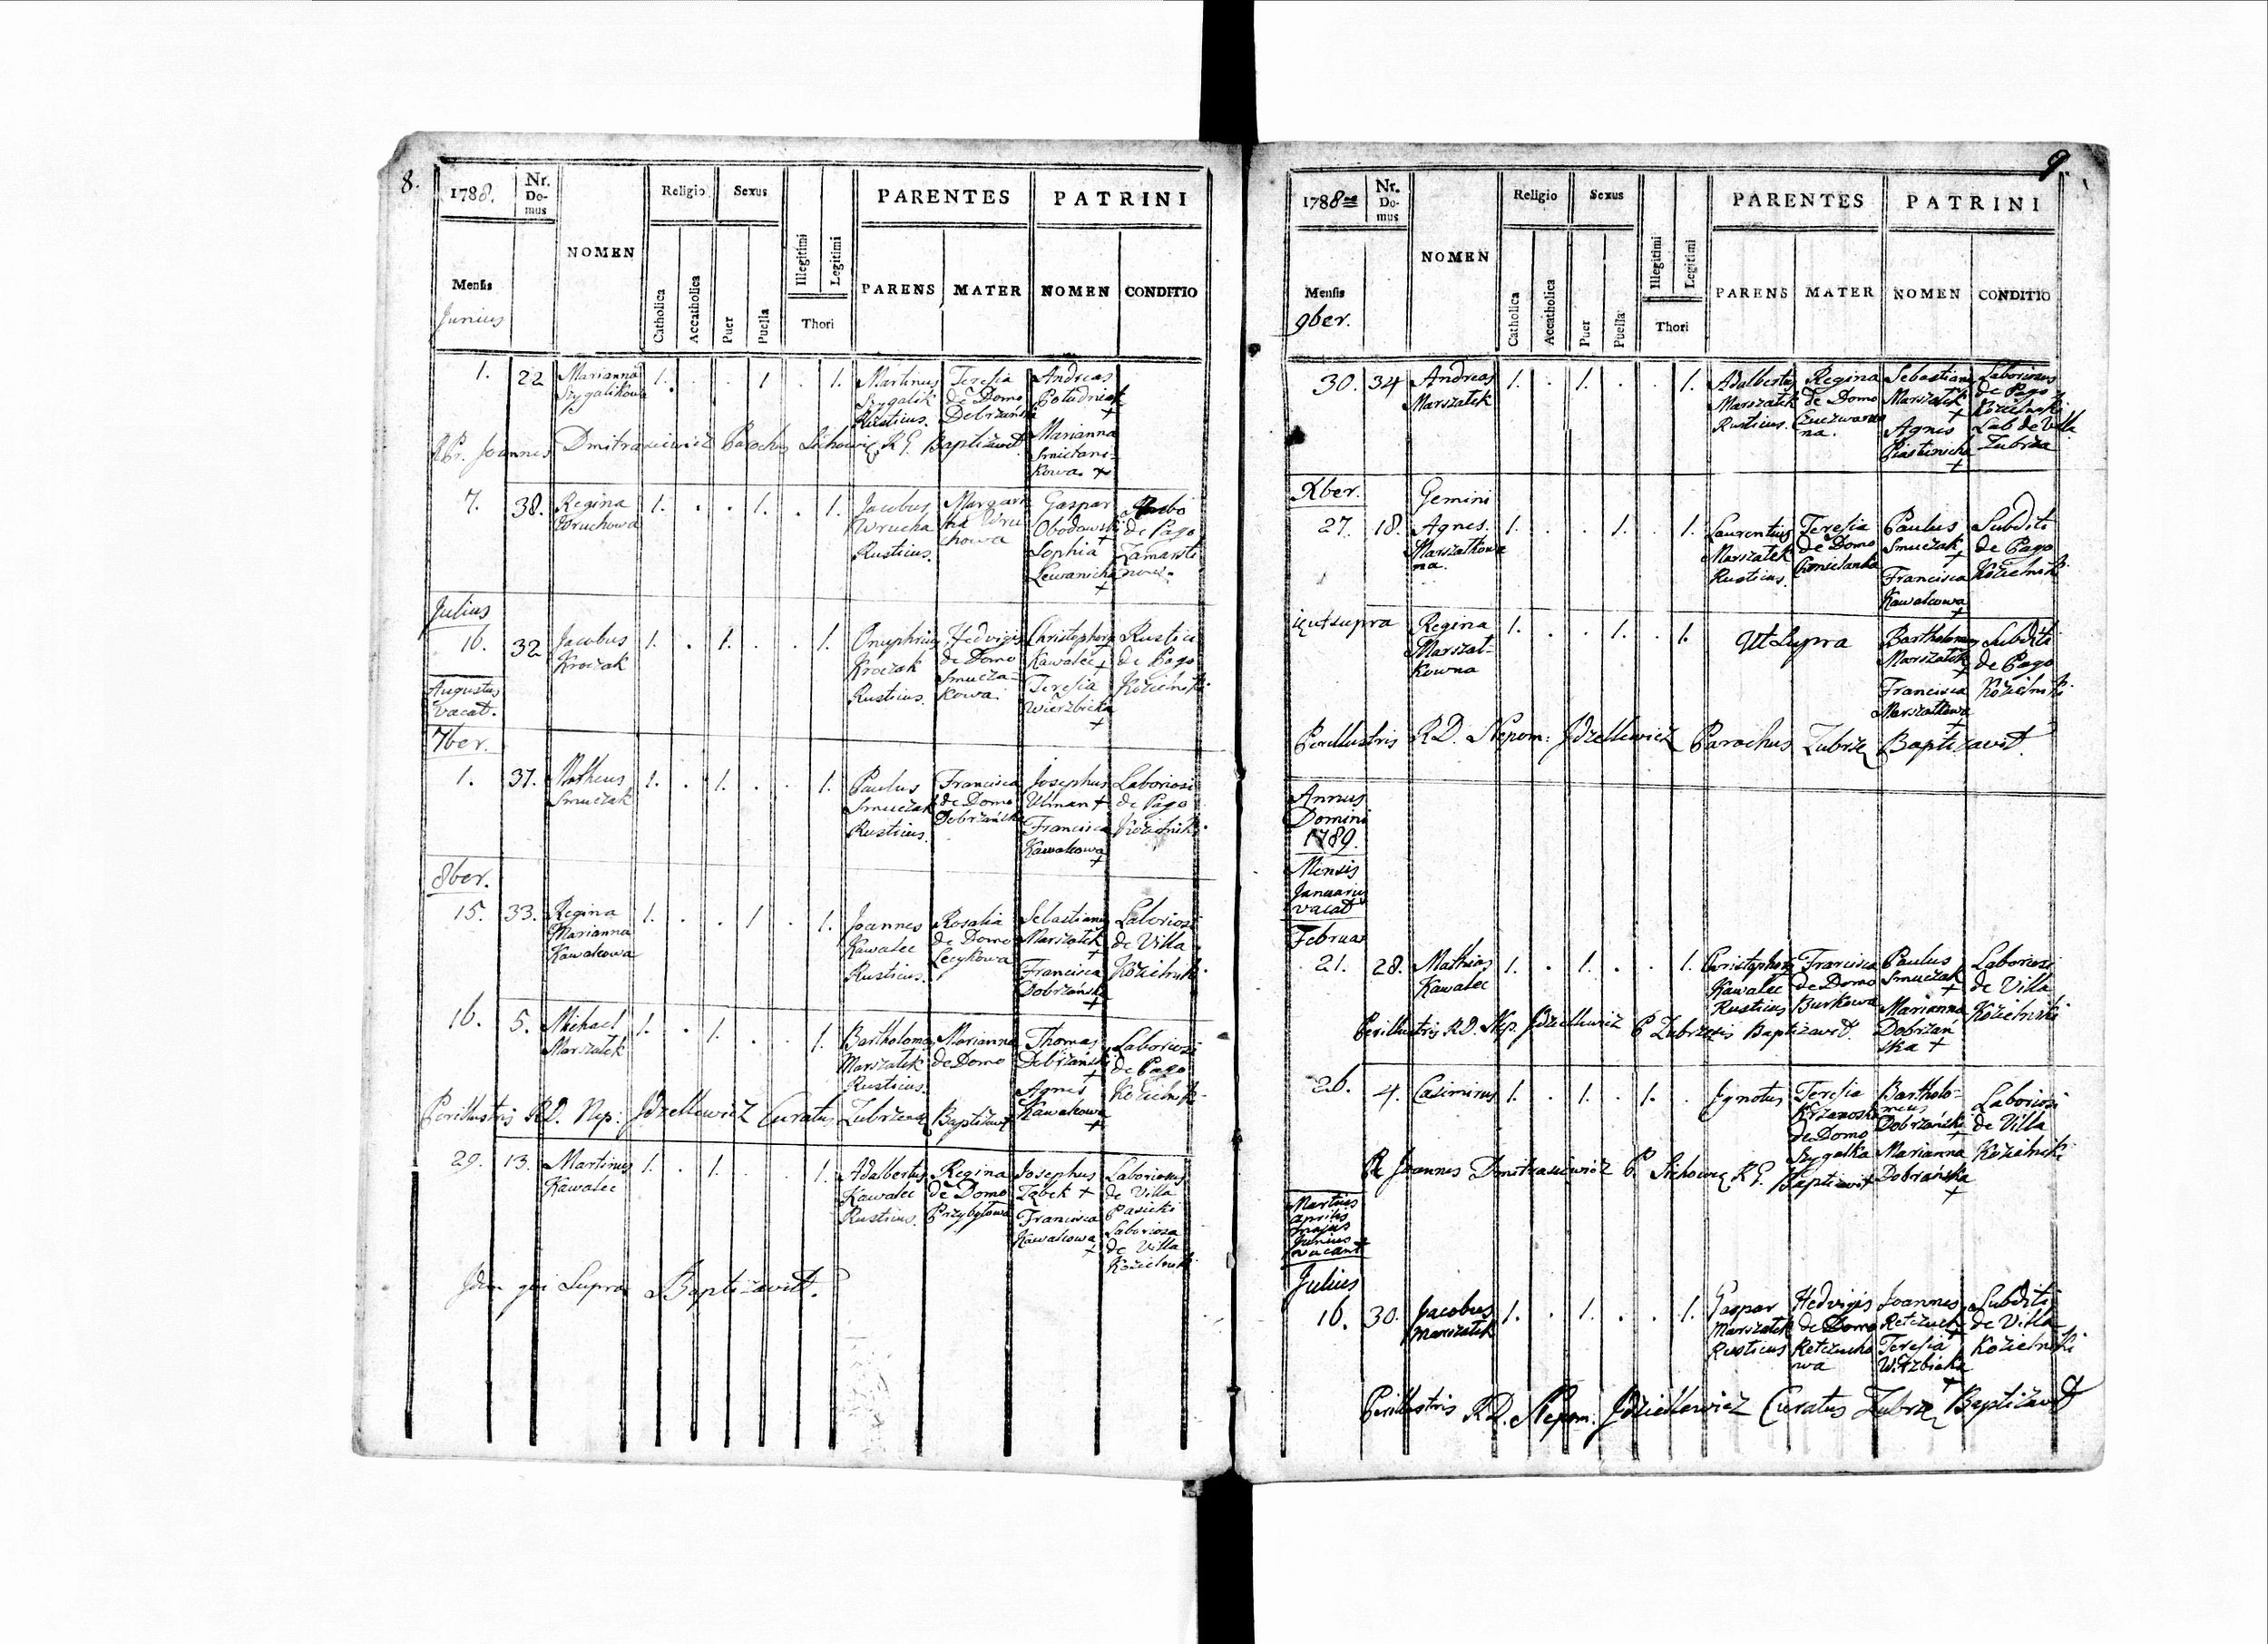 8.
1788.
Nr. Domus
NOMEN
Religio
Sexus
PARENTES
PATRINI
Mensis
Catholica
Accatholica
Puer
Puella
Illegitimi
Legitimi
Thori
PARENS
MATER
NOMEN
CONDITIO
Junius
1. 22 Marianna Szygalikowa 1. . . 1 . 1. Martinus Szygalik Rusticus. Teresia de Domo Debrzańsk Andreas Południak + Marianna Smietanikowa +
RPr. Joannes Dmitrasiewicz Parochus Sichowię R. G. Baptizavit
7. 38. Regina Woruchowa 1. . . 1. . 1. Jacobus Wrucha Rusticus. Gaspar Obodowski + Sophia Lewanicka + de Pago Zamarsti
Julius
16. 32 Jacobus Kroczak 1. . 1. . . 1. Onuphrius Kroczak Rusticus. Hedvigis de Domo Smuczakowa. Christophorus Kawalec + Teresia Wierzbicka + Rustici de Pago Kozielniki
Augustus vacat.
7ber.
1. 37. Matheus Smuczak 1. . 1. . . 1. Paulus Smuczak Rusticus. Francisca de Domo Dobrzańska Josephus Ulman + Francisca Kawalcowa + Laboriosi de Pago Kozielniki.
8ber.
15. 33. Regina Marianna Kawalcowa 1. . . 1 . 1. Joannes Kawalec Rusticus. Rosalia de Domo Lecykowa Sebastianus Marszałek + Francisca Dobrzańska + Laboriosi de Villa Kozielnik.
16. 5. Michael Marszałek 1. . 1. . . 1. Bartholomeus Marszałek Rusticus. Marianna de Domo Thomas Dobrzański + Agnes Kawalcowa + Laboriosi de Pago Kozielnik.
Perillustris RD. Nep: Jdzellewicz Curatus Zubrzens Baptizavit
29. 13. Martinus Kawalec 1. . 1. . . 1. Adalbertus Kawalec Rusticus. Regina de Domo Przybyłowa Josephus Ząbek + Francisca Kawalcowa + Laboriosus de Villa Pasieki Laboriosa de Villa Kozielniki
Idem qui Supra Baptizavit.
9.
1788
Nr. Domus
NOMEN
Religio
Sexus
PARENTES
PATRINI
Mensis
Catholica
Accatholica
Puer
Puella
Illegitimi
Legitimi
Thori
PARENS
MATER
NOMEN
CONDITIO
9ber.
30. 34 Andreas Marszałek 1. . 1. . . 1. Adalbertus Marszałek Rusticus. Regina de Domo Sebastianus Marszałek + Agnes + Laboriosus de Pago Kozielniki Lab de Villa Zubrza
Xber.
Gemini
27. 18. Agnes. Marszałkowna. 1. . . 1. . 1. Laurentius Marszałek Rusticus. Teresia de Domo Smietanka Paulus Smuczak + Francisca Kawalcowa + Subditi de Pago Kozielnik.
ut supra Regina Marszałkowna 1. . . 1. . 1. Ut Supra Bartholomeus Marszałek + Francisca Marszałkowa + Subditi de Pago Kozielnik.
Perillustris RD. Nepom: Jdzellewicz Parochus Zubrzę Baptizavit
Annus Domini 1789.
Mensis Januarius vacat
Februar
21. 28. Mathias Kawalec 1. . 1. . . 1. Christophorus Kawalec Rusticus Francisca de Domo Burkowa Paulus Smuczak + Marianna Dobrzańska + Laboriosi de Villa Kozielniki
Perillustris RD. Nep. Jdzellewicz P Zubrzęsis Baptizavit.
26. 4. Casimirus 1. . 1. . 1. . Ignotus Teresia de Domo Szygalka Bartholomeus Dobrzański + Marianna Dobrańska + Laboriosi de Villa Kozielniki
R Joannes Dmitrasiewicz P. Sichowię R G. Baptizavit
Martius Aprilis Majus Junius vacant
Julius
16. 30. Jacobus Marszałek 1. . 1. . . 1. Gaspar Marszałek Rusticus Hedvigis de Domo Retczuchowa Joannes Retczuch + Teresia Wirzbicka + Subditi de Villa Kozielniki
Perillustris RD. Nepom: Jdziellewicz Curatus Zubrzę Baptizavit